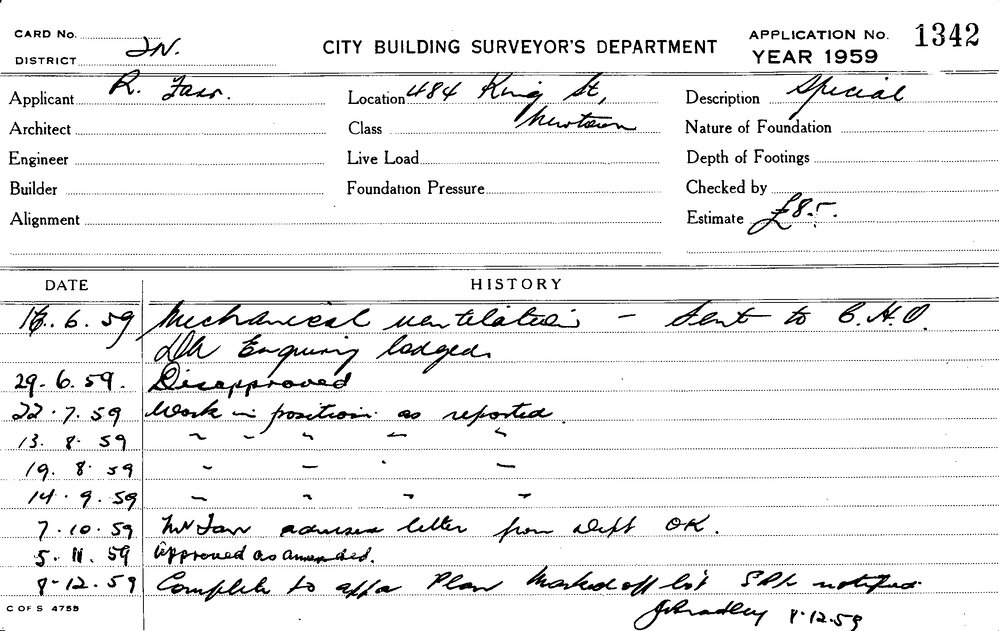 CARD No.
CITY BUILDING SURVEYOR'S DEPARTMENT
APPLICATION No. 1342
DISTRICT 2N.
YEAR 1959
Applicant R. Farr.
Location 484 King St,
Newtown
Description Special
Architect
Class
Nature of Foundation
Engineer
Live Load
Depth of Footings
Builder
Foundation Pressure
Checked by
Alignment
Estimate £85.
DATE
HISTORY
16.6.59 Mechanical ventilation - Sent to C.H.O.
Enquiry lodged
29.6.59. Disapproved
22.7.59 Work in position as reported
13.8.59 " " " " "
19.8.59 " " " "
14.9.59 " " " "
7.10.59 Mr Farr advises letter from Dept OK.
5.11.59 Approved as amended.
8-12.59 Complete to Plan Marked off list notified
J Bradley 8.12.59
C OF S 4755